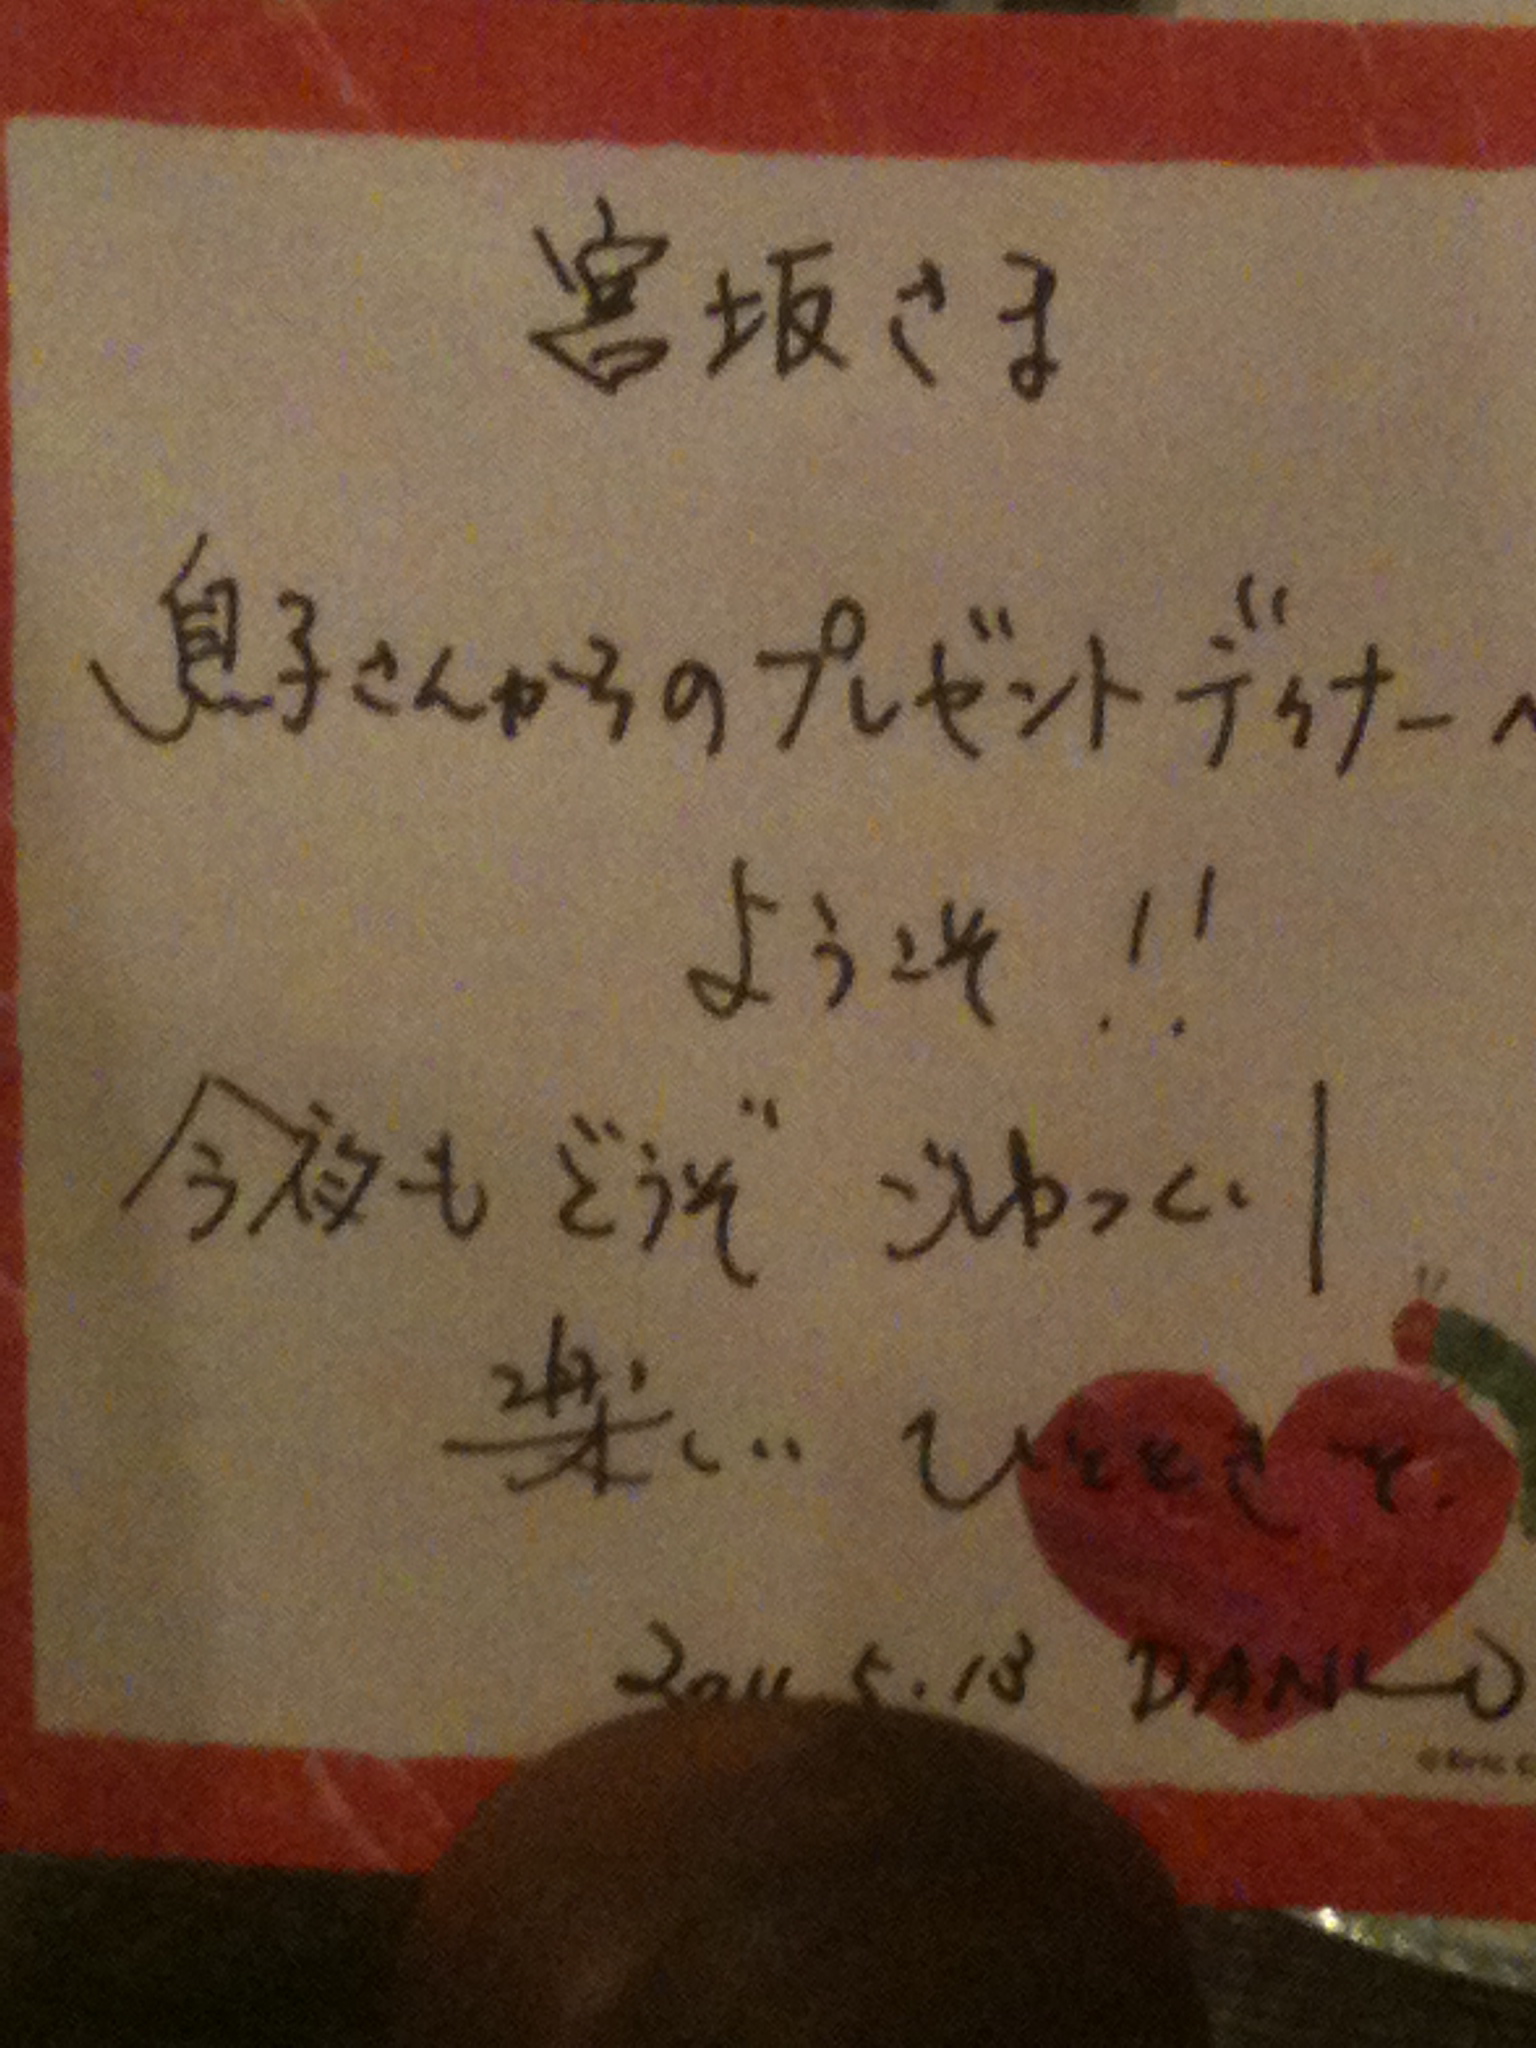 宮坂さま
息子さんからのプレゼントディナーへ
ようこそ!!
今夜も どうぞ ごゆっくり
楽しい ひとときを.
2011 5.18 DANLO